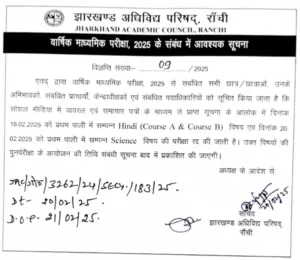 झारखण्ड अधिविद्य परिषद्, राँची
JHARKHAND ACADEMIC COUNCIL, RANCHI
वार्षिक माध्यमिक परीक्षा, 2025 के संबंध में आवश्यक सूचना
विज्ञप्ति संख्या 09 /2025
एतद् द्वारा वार्षिक माध्यमिक परीक्षा, 2025 से संबंधित सभी छात्र/छात्राओं, उनके
अभिभावकों संबंधित प्राचार्यों, केन्द्राधीक्षकों एवं संबंधित पदाधिकारियों को सूचित किया जाता है कि
सोशल मीडिया में वायरल एवं समाचार पत्रों के माध्यम से प्राप्त सूचना के आलोक में दिनांक
18.02.2025 को प्रथम पाली में सम्पन्न Hindi (Course A & Course B) विषय एवं दिनांक 20
.02.2025 को प्रथम पाली में सम्पन्न Science विषय की परीक्षा रद्द की जाती है। उक्त विषयों की
पुनर्परीक्षा के आयोजन की तिथि संबंधी सूचना बाद में प्रकाशित की जाएगी।
अध्यक्ष के आदेश से.
3262/24/5604/183/25.
Dt- 20/02/25.
D.O.P- 21/02/25.
20/02/25
सचिव
झारखण्ड अधिविद्य परिषद्, राँची